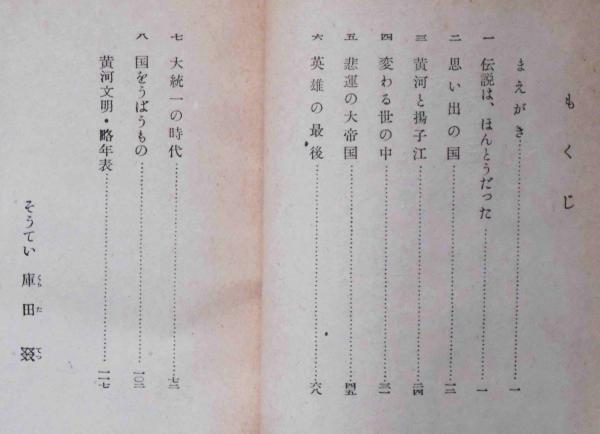 もくじ
まえがき……一
一 伝説は、ほんとうだった……一
二 思い出の国……一二
三 黄河と揚子江……二四
四 変わる世の中……三一
五 悲運の大帝国……四五
六 英雄の最後……六八
七 大統一の時代……七二
八 国をうばうもの……一〇二
黄河文明・略年表……一一七
そうてい 庫田叕
くらたてつ